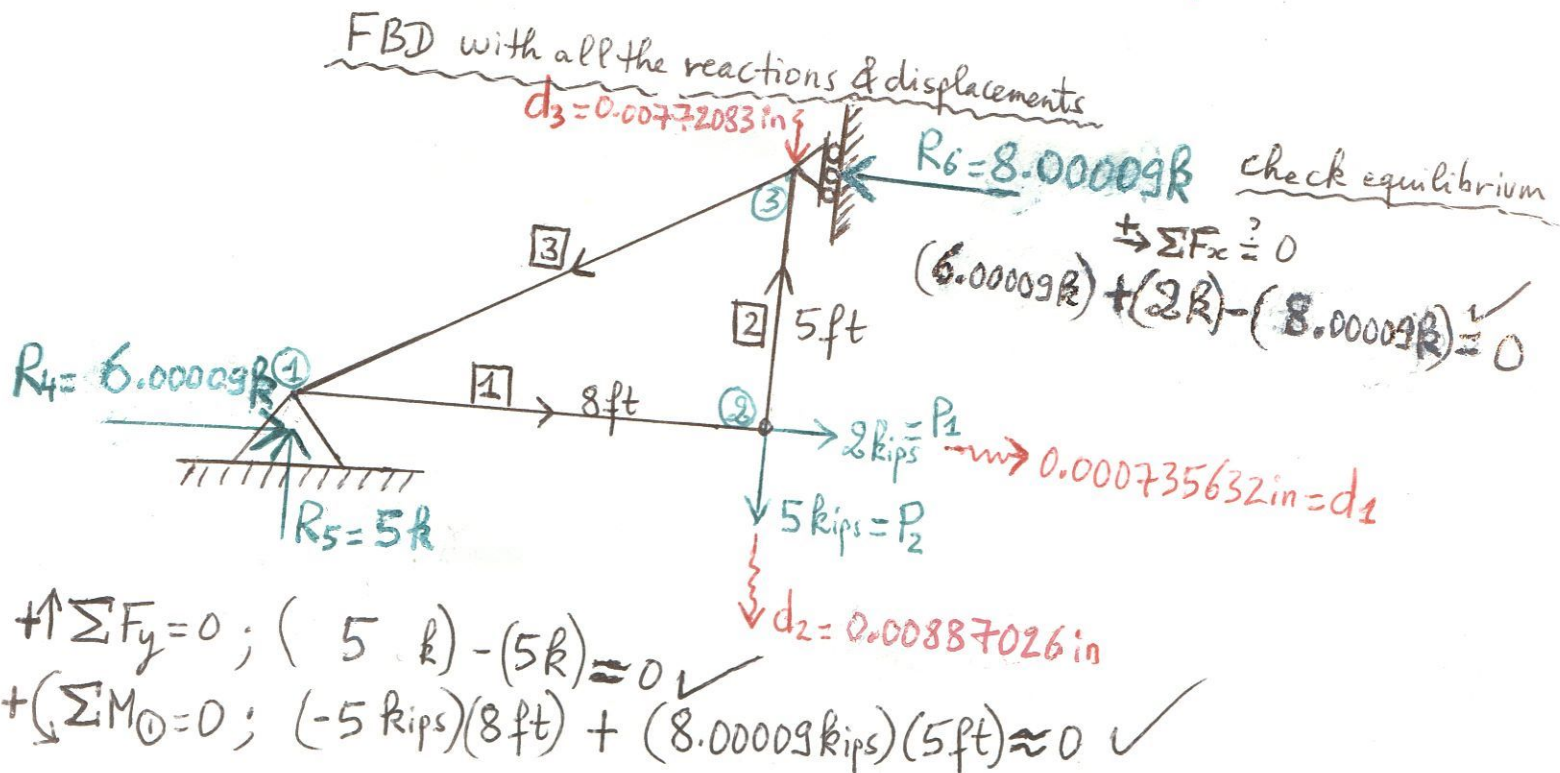 FBD with all the reactions & displacements
d3 = 0.00772083in
R6=8.00009k
check equilibrium
③
+→ ΣFx ≟ 0
(6.00009k) + (2k) - (8.00009k) ≟ 0 ✓
3
2
5ft
R4= 6.00009k
①
1
8ft
②
2kips = P1
0.000735632in = d1
R5 = 5k
5kips = P2
d2 = 0.00887026in
+↑ ΣFy = 0 ; ( 5 k) - (5k) ≈ 0 ✓
+ ΣM① = 0 ; (-5 kips)(8ft) + (8.00009kips)(5ft) ≈ 0 ✓